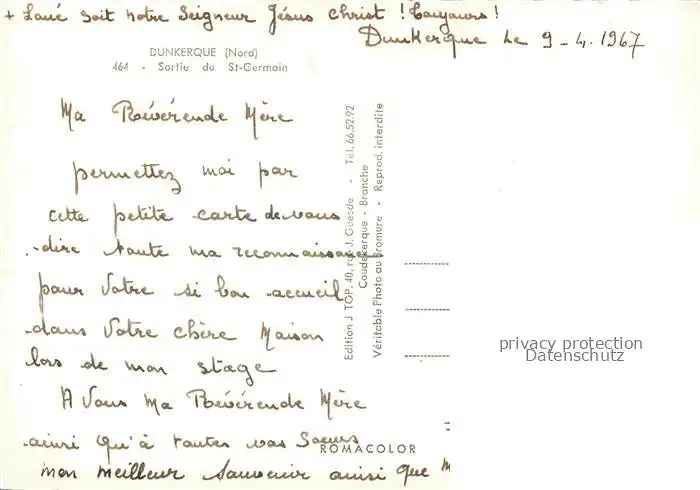 + Loué soit notre Seigneur Jésus Christ ! Toujours !
Dunkerque Le 9-4.1967
DUNKERQUE (Nord)
464 - Sortie du St-Germain
Ma Révérende Mère
permettez moi par
cette petite carte de vous
dire toute ma reconnaissance
pour Votre si bon accueil
dans Votre chère Maison
lors de mon stage
A Vous Ma Révérende Mère
ainsi qu'à toutes vos Soeurs
mon meilleur Souvenir ainsi que M
Edition J TOP, 40, rue J. Guesde - Tél. 66.52.92
Coudekerque - Branche
Véritable Photo au Bromure - Reprod. interdite
ROMACOLOR
privacy protection
Datenschutz